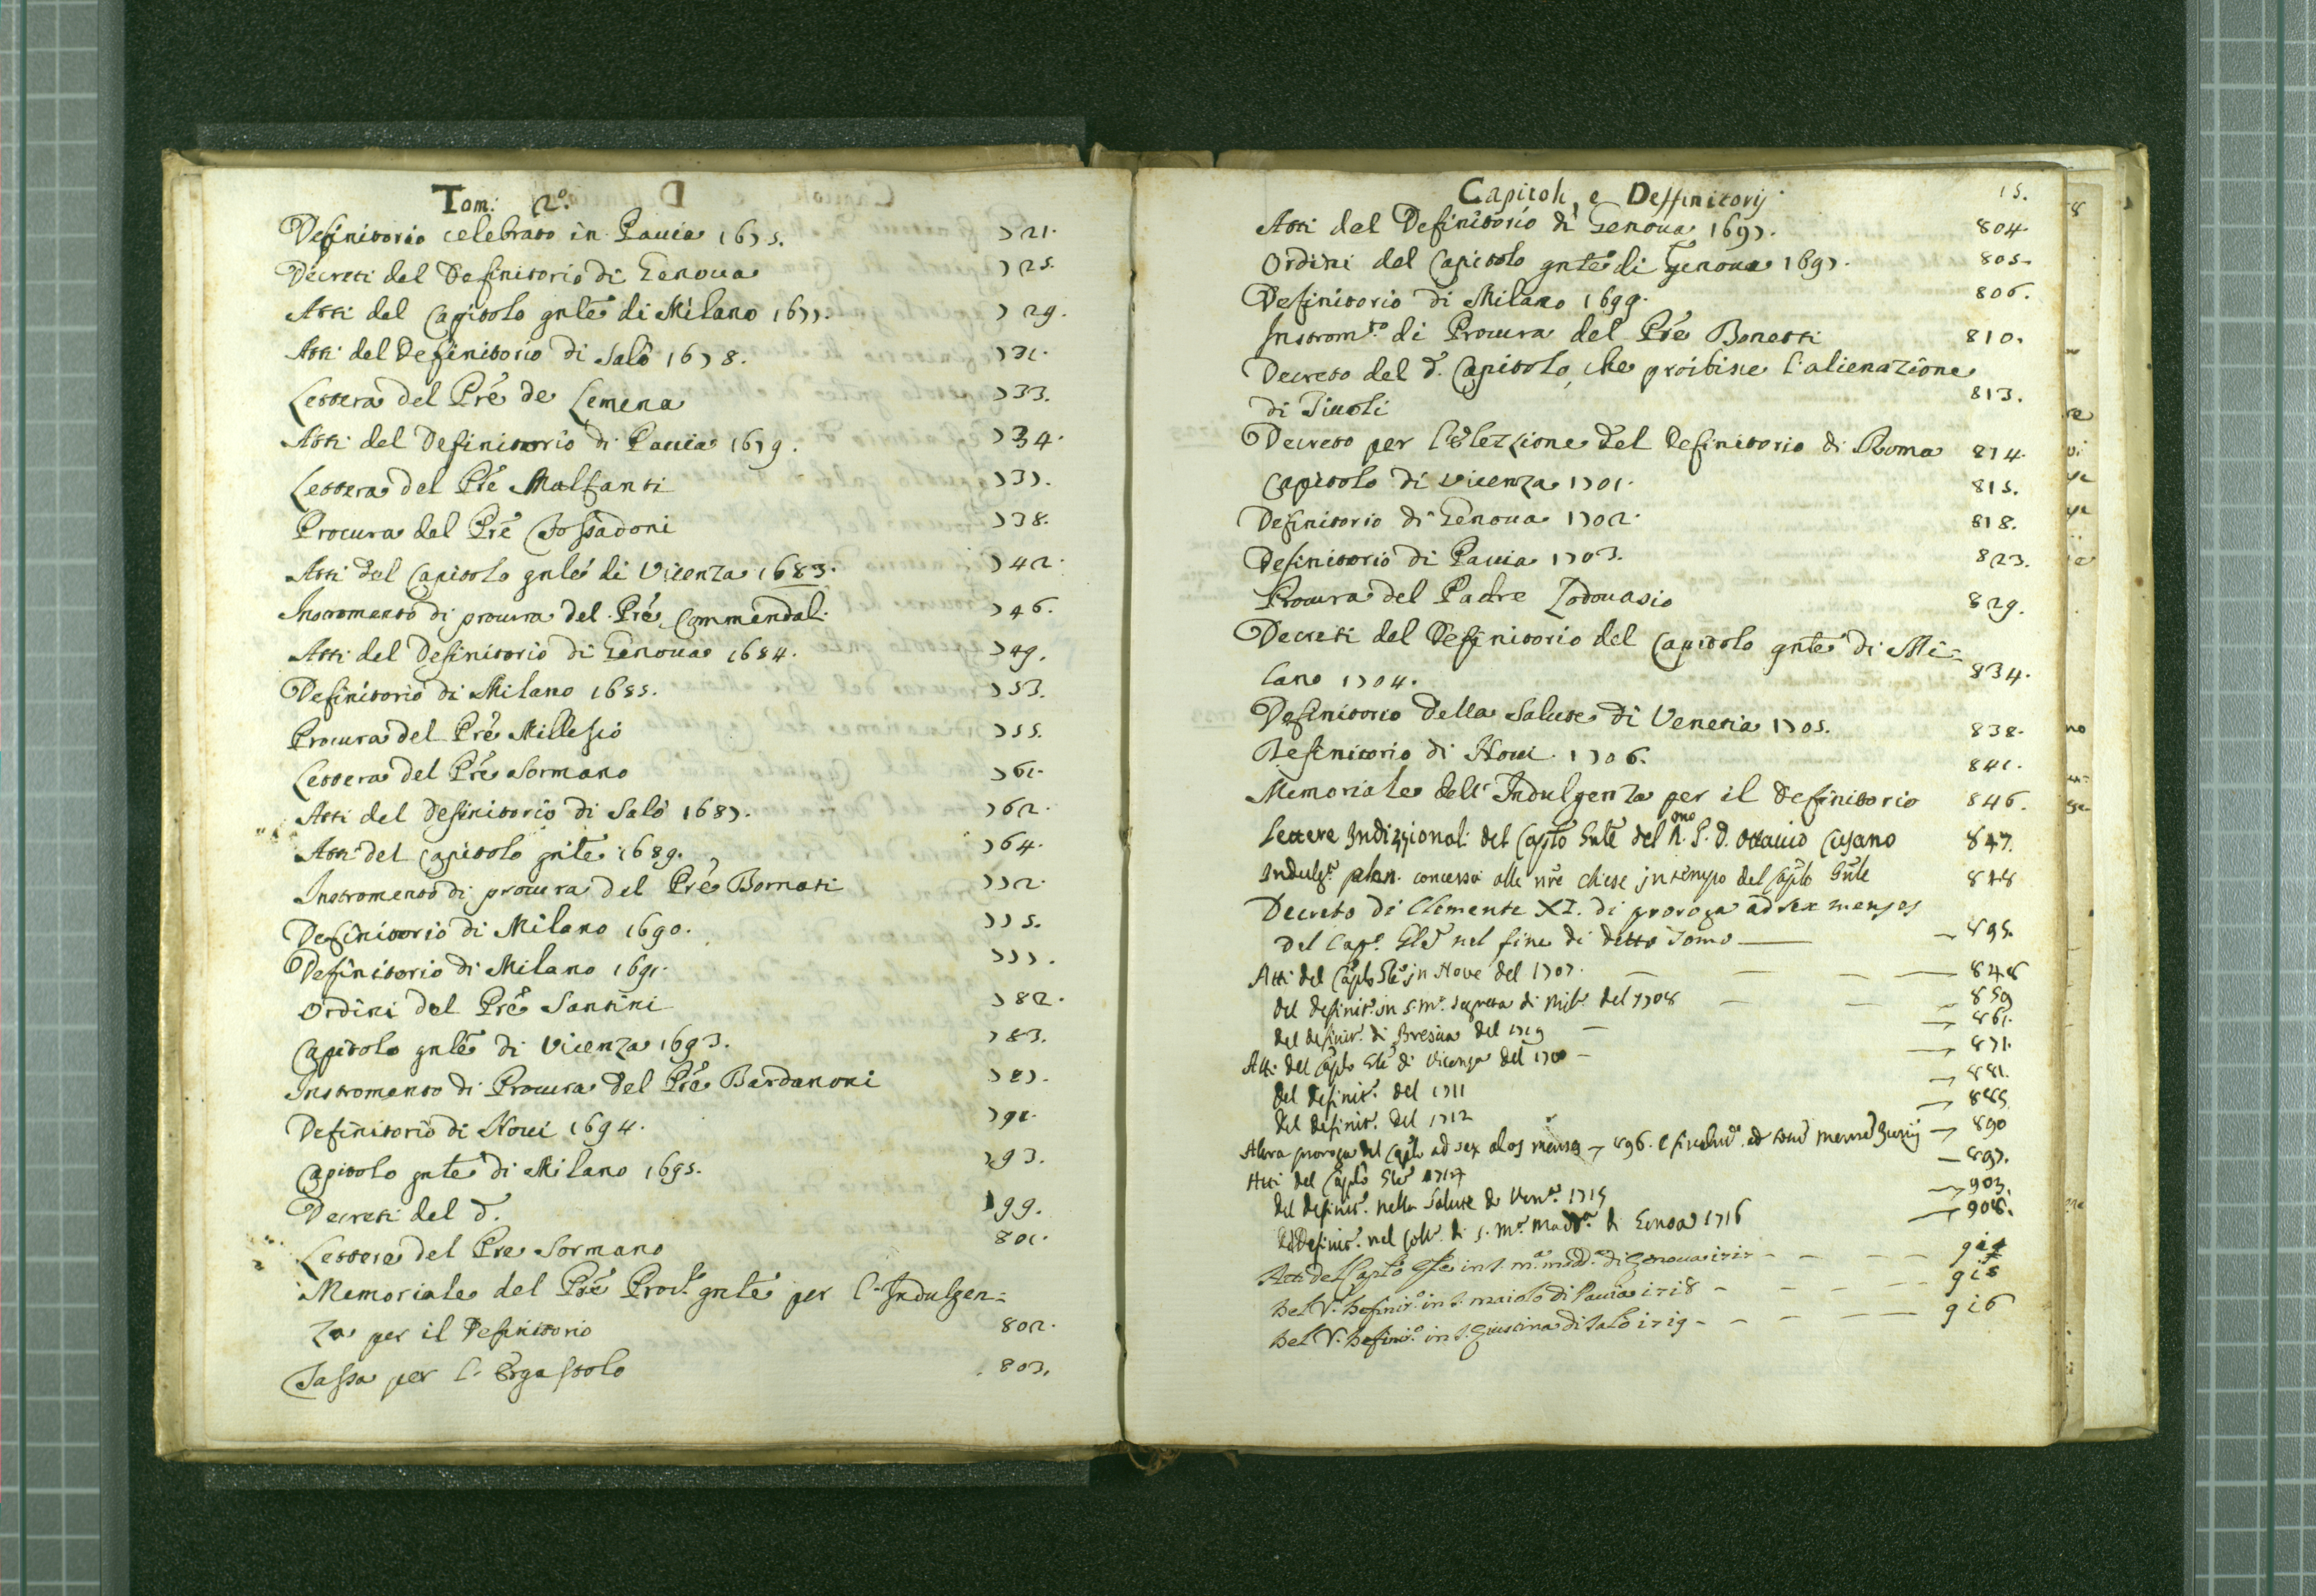 Tom: 2º.
Definitorio celebrato in Pauia 1675. 721.
Decreti del Definitorio di Genoua 725.
Atti del Capitolo gnle di Milano 1677. 729.
Atti del Definitorio di Salò 1678. 731.
Lettera del Prè de Lemena 733.
Atti del Definitorio di Pauia 1679. 734.
Lettera del Prè Malfanti 737.
Procura del Prè Tossadoni 738.
Atti del Capitolo gnle di Vicenza 1683. 742.
Instromento di procura del Prè Commendol. 746.
Atti del Definitorio di Genoua 1684. 749.
Definitorio di Milano 1685. 753.
Procura del Prè Millesio 755.
Lettera del Prè Sormano 761.
Atti del Definitorio di Salò 1687. 762.
Atti del Capitolo gnle 1689. 764.
Instromento di procura del Prè Bornati 772.
Definitorio di Milano 1690. 775.
Definitorio di Milano 1691. 777.
Ordini del Prè Santini 782.
Capitolo gnle di Vicenza 1693. 783.
Instromento di Procura del Prè Bardanoni 787.
Definitorio di Noui 1694. 791.
Capitolo gnle di Milano 1695. 793.
Decreti del d. 799.
Lettera del Pre Sormano 801.
Memoriale del Prè Proc. gnle per l'Indulgen=
za per il Definitorio 802.
Tassa per l'Ergastolo 803.
Capitoli, e Deffinitorij 15.
Atti del Definitorio di Genoua 1697. 804.
Ordini del Capitolo gnle di Genoua 1697. 805.
Definitorio di Milano 1699. 806.
Instromto. di Procura del Prè Bonetti 810.
Decreto del d. Capitolo, che proibisce l'alienazione
di Tiuoli 813.
Decreto per l'elezzione del Definitorio di Roma 814.
Capitolo di Vicenza 1701. 815.
Definitorio di Genoua 1702. 818.
Definitorio di Pauia 1703. 823.
Procura del Padre Lodouasio 829.
Decreti del Definitorio del Capitolo gnle di Mi=
lano 1704. 834.
Definitorio della Salute di Venetia 1705. 838.
Definitorio di Noui 1706. 841.
Memoriale dell'Indulgenza per il Definitorio 846.
Lettere Indizzionali del Caplo Gnle del R.mo P. D. Ottauio Cusano 847.
Indulga. plen. concessa alle nre chiese in tempo del Caplo Gnle 848
Decreto di Clemente XI. di proroga ad sex menses
del Cap.o Gle nel fine di detto Tomo 895.
Atti del Caplo Gle in Noue del 1707. 848
del definit.o in S. M.a Segreta di Mil.o del 1708 859
del definit.o di Brescia del 1709 861.
Atti del Caplo Gle di Vicenza del 1710 871.
del definit.o del 1711 881.
del definit.o del 1712 885
Altra proroga del Caplo ad sex alios menses 896. 890
Atti del Caplo Gle 1714 897.
del definit.o nella Salute di Ven.a 1715 903.
del Definit.o nel Coll.o di S. M.a Madd.a di Genoa 1716 908.
Atti del Caplo Gle in S. M.a Madd.a di Genoua 1717
Del V. Definit.o in S. Maiolo di Pauia 1718 915
Del V. Definit.o in S. Giustina di Salò 1719 916